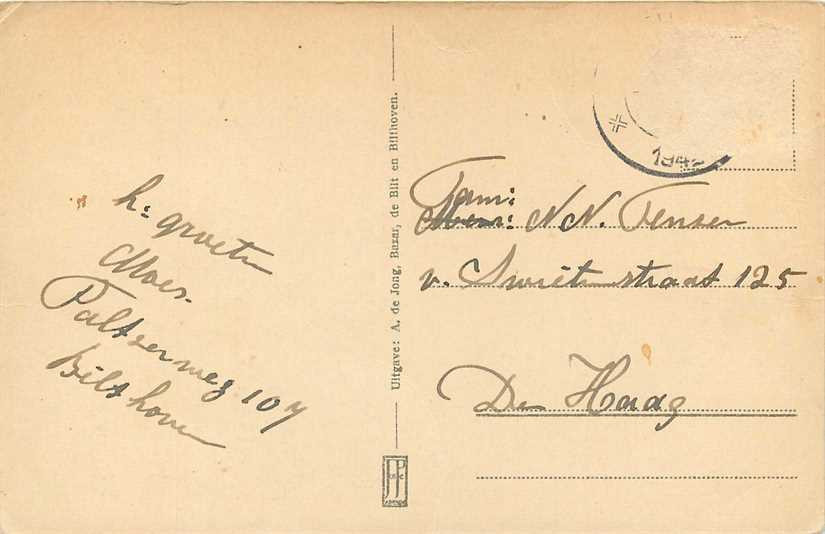 h: groeten
Moes.
Paltserweg 107
Bilthoven
Uitgave: A. de Jong, Bazar, de Bilt en Bilthoven.
194
Fam:
N.N. Tenser
v. Swietenstraat 125
Den Haag